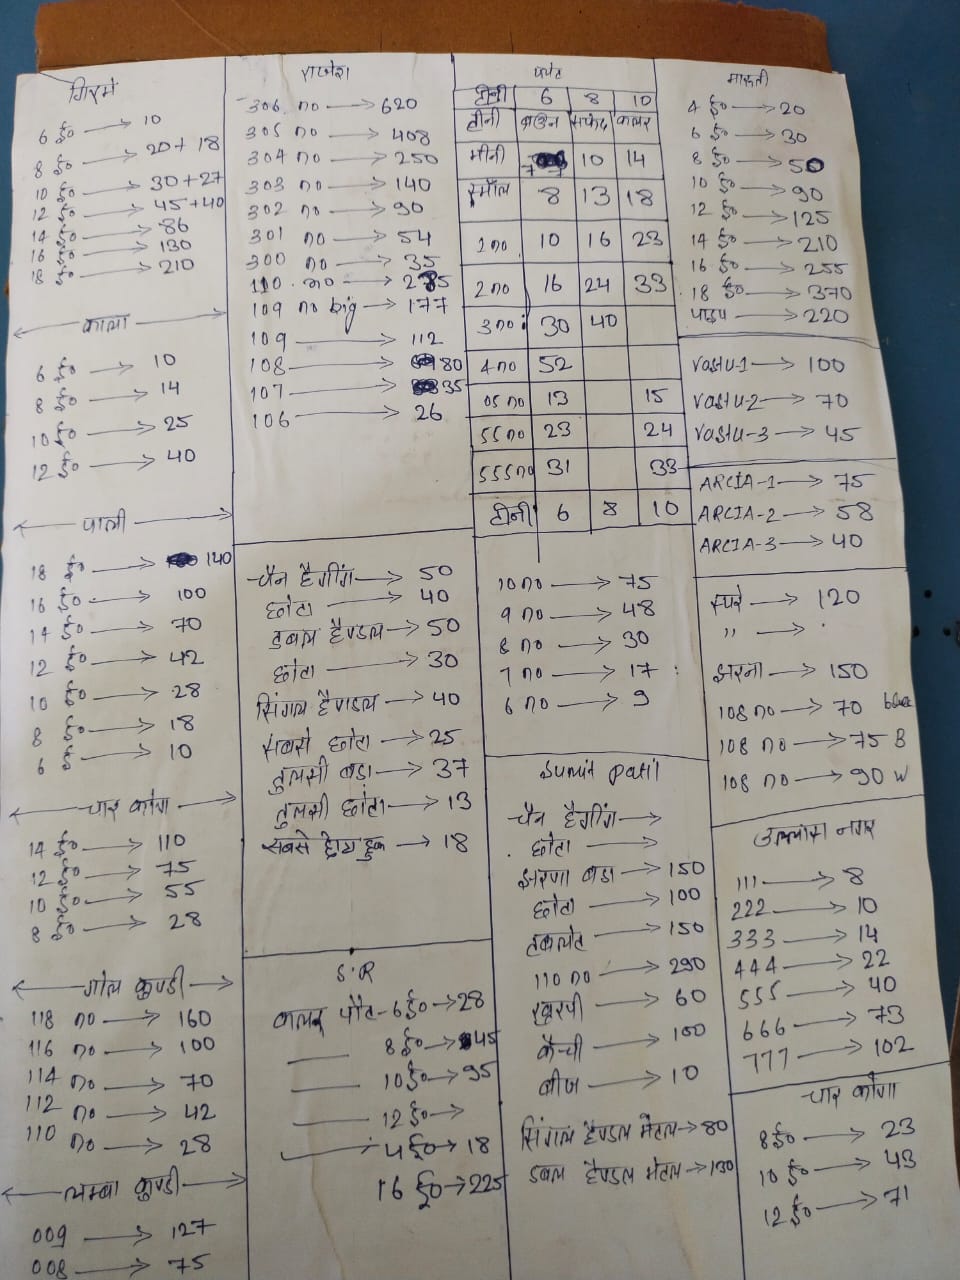 गिरमे
6 ईo → 10
8 ईo → 20+18
10 ईo → 30+27
12 ईo → 45+40
14 ईo → 86
16 ईo → 130
18 ईo → 210
← काला →
6 ईo → 10
8 ईo → 14
10 ईo → 25
12 ईo → 40
← पाली →
18 ईo → 140
16 ईo → 100
14 ईo → 70
12 ईo → 42
10 ईo → 28
8 ईo → 18
6 ईo → 10
← चार कोण →
14 ईo → 110
12 ईo → 75
10 ईo → 55
8 ईo → 28
← गोल कुण्डी →
118 नo → 160
116 नo → 100
114 नo → 70
112 नo → 42
110 नo → 28
← लम्बा कुण्डी →
009 → 127
008 → 75
राजेश
306 no → 620
305 no → 408
304 no → 250
303 no → 140
302 no → 90
301 no → 54
300 no → 35
110 no → 285
109 no big → 177
109 → 112
108 → 80
107 → 35
106 → 26
चैन हैगींग → 50
छोटा → 40
डबल हैण्डल → 50
छोटा → 30
सिंगल हैण्डल → 40
सबसे छोटा → 25
तुलसी बडा → 37
तुलसी छोटा → 13
सबसे छोटा हुक → 18
S.R
कलर पौट - 6 ईo → 28
8 ईo → 45
10 ईo → 95
12 ईo →
14 ईo → 18
16 ईo → 225
प्लेट
टीनी 6 8 10
टीनी ब्राउन सफेद कलर
मीनी 7 10 14
स्मॉल 8 13 18
1 no 10 16 23
2 no 16 24 33
3 no 30 40
4 no 52
05 no 13 15
55 no 23 24
555 no 31 33
टीनी 6 8 10
10 no → 75
9 no → 48
8 no → 30
7 no → 17
6 no → 9
Sumit patil
चैन हैगींग →
छोटा →
झरणा बडा → 150
छोटा → 100
→ 150
110 no → 290
खुरपी → 60
कैन्ची → 100
बीज → 10
सिंगल हैण्डल मेटल → 80
डबल हैण्डल मेटल → 130
मारुती
4 ईo → 20
6 ईo → 30
8 ईo → 50
10 ईo → 90
12 ईo → 125
14 ईo → 210
16 ईo → 255
18 ईo → 370
पाइप → 220
vastu-1 → 100
vastu-2 → 70
vastu-3 → 45
ARCIA-1 → 75
ARCIA-2 → 58
ARCIA-3 → 40
स्परे → 120
,, →
झरना → 150
108 no → 70
108 no → 75 B
108 no → 90 W
उल्लास नगर
111 → 8
222 → 10
333 → 14
444 → 22
555 → 40
666 → 73
777 → 102
चार कोणा
8 ईo → 23
10 ईo → 43
12 ईo → 71